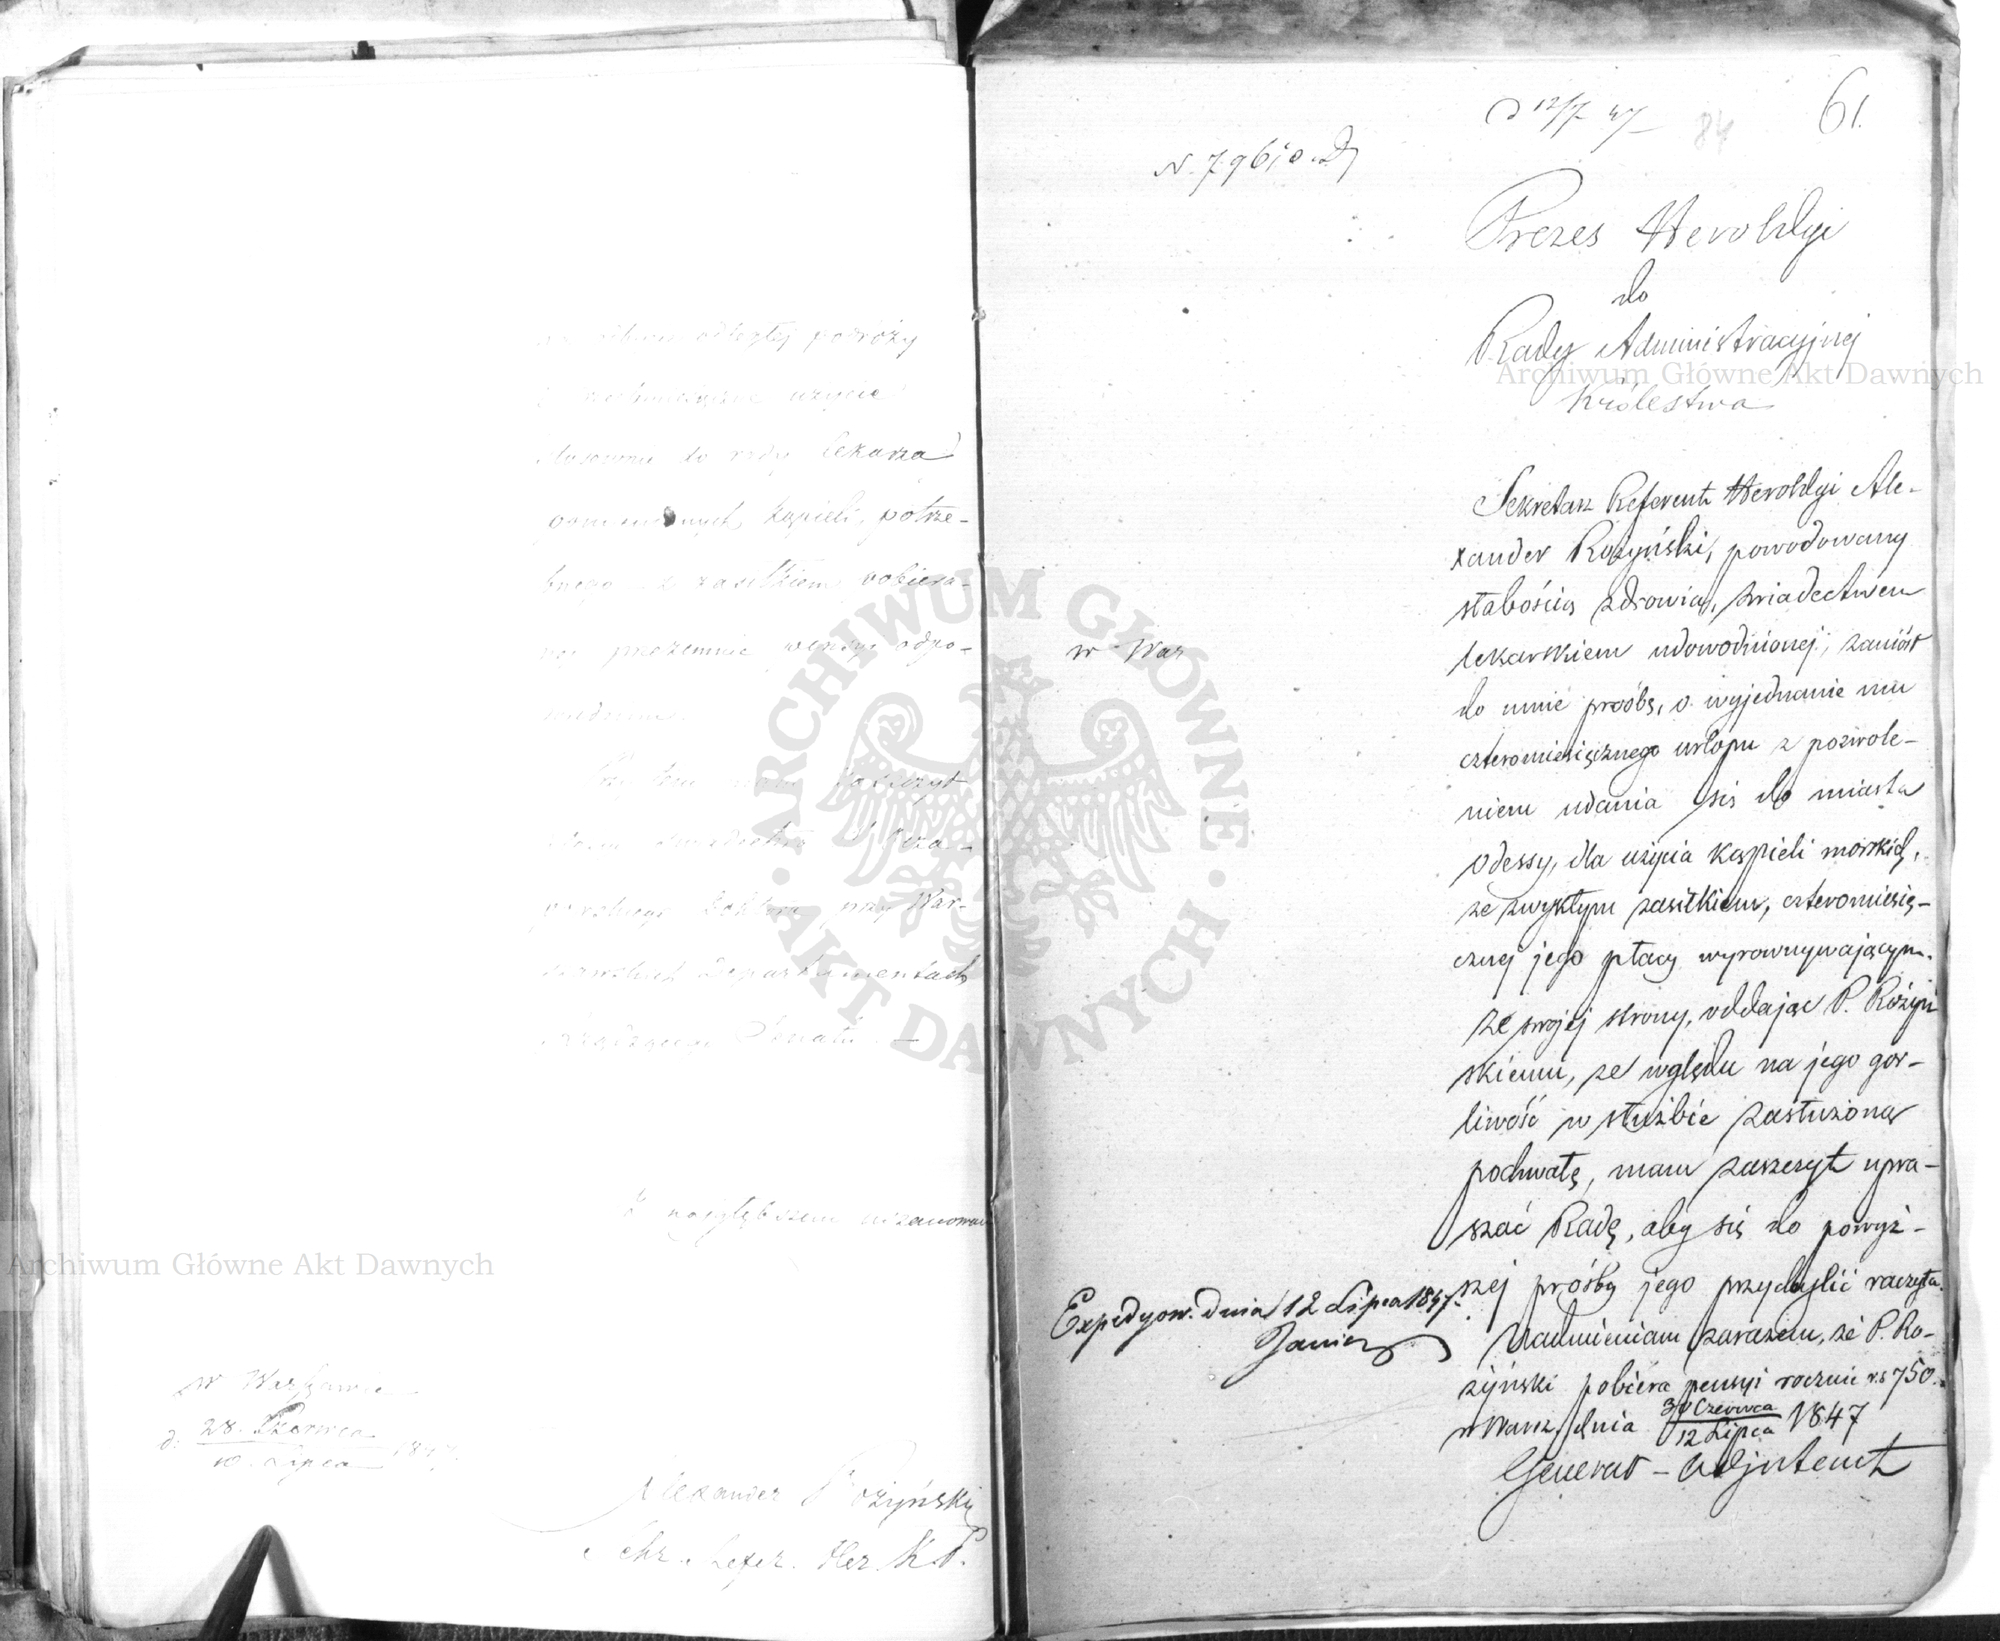 odległej podróży
użycie
stosownie do rady lekarza
kąpieli, potrze-
bnego z zasiłkiem pobiera-
nej przezemnie pensyi odpo-
zaszczyt
lekar-
Doktora przy War-
szawskich Departamentach
Rządzącego Senatu. —
Z najgłębszem uszanowan
w Warszawie
d. 28. Czerwca / 10. Lipca 1847.
Alexander Rożyński
Sekr. Refer. Her. K. P.
d 12/7 47
84
61.
N. 796
Prezes Heroldyi
do
Rady Administracyjnej
Królestwa
w War
Sekretarz Referent Heroldyi Ale-
xander Rożyński, powodowany
słabością zdrowia, świadectwem
lekarskiem udowodnionej, zaniósł
do mnie prośbę, o wyjednanie mu
czteromiesięcznego urlopu z pozwole-
niem udania się do miasta
Odessy, dla użycia kąpieli morskich,
ze zwykłym zasiłkiem, czteromiesię-
cznej jego płacy wyrównywającym.
Ze swojej strony, oddając P. Rożyń
skiemu, ze względu na jego gor-
liwość w służbie zasłużoną
pochwałę, mam zaszczyt upra-
szać Radę, aby się do powyż-
szej prośby jego przychylić raczyła.
Nadmieniam zarazem, że P. Ro-
żyński pobiera pensyi rocznie r.s 750.
w Warsz. dnia 30 Czerwca / 12 Lipca 1847
Generał-Adjutant
Expedyow. dnia 12 Lipca 1847.
Archiwum Główne Akt Dawnych
Archiwum Główne Akt Dawnych
ARCHIWUM GŁÓWNE · AKT DAWNYCH ·